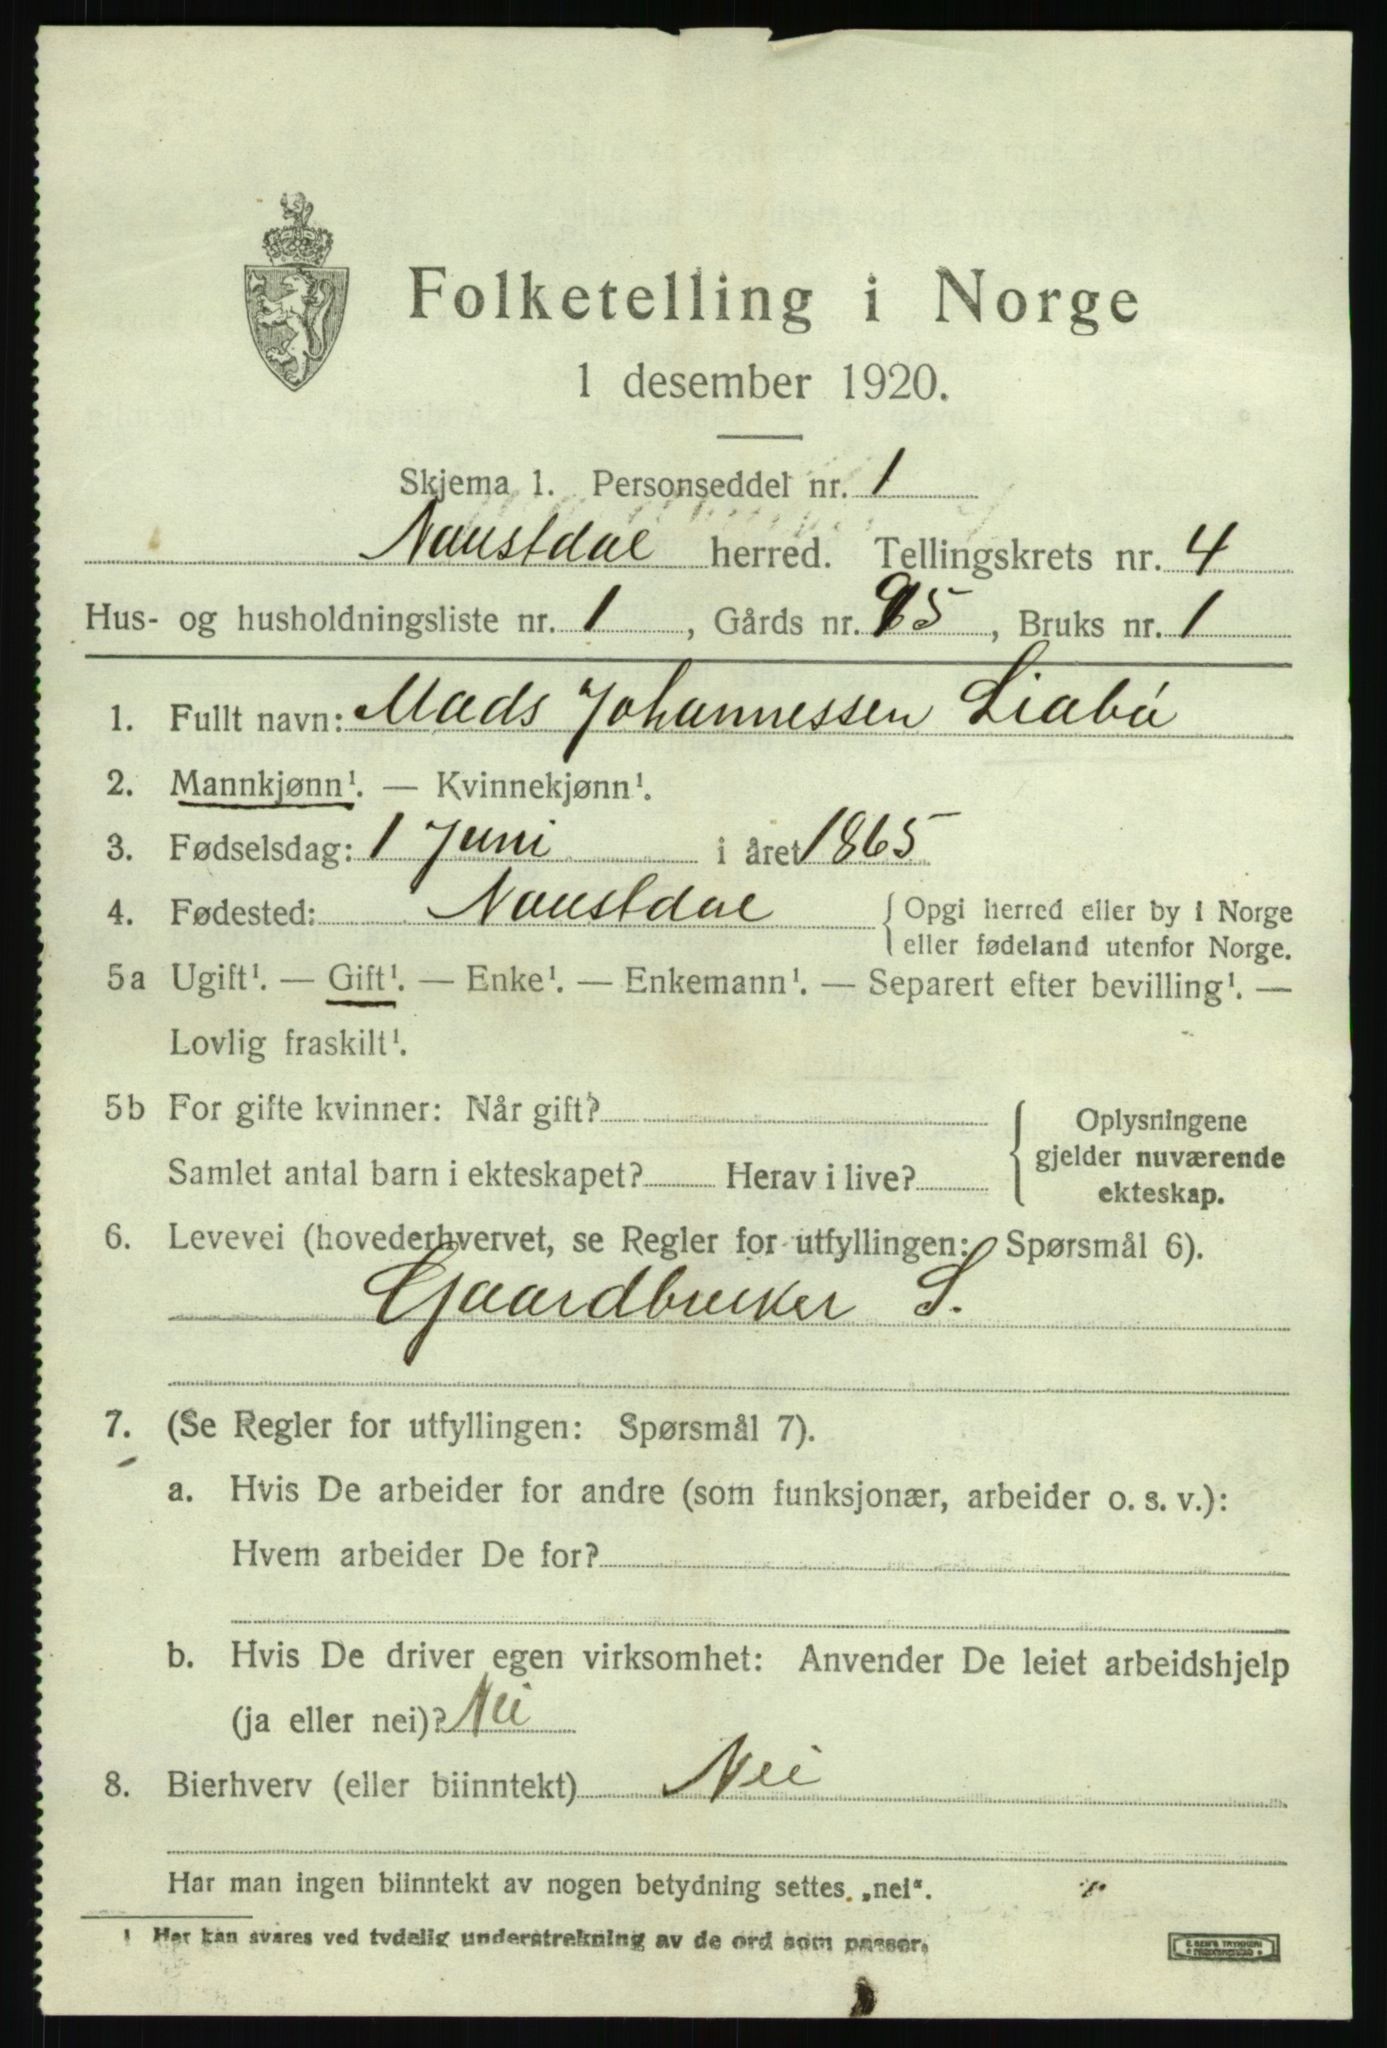 Folketelling i Norge
1 desember 1920.
Skjema 1. Personseddel nr. 1
Naustdal herred. Tellingskrets nr. 4
Hus- og husholdningsliste nr. 1, Gårds nr. 95, Bruks nr. 1
1. Fullt navn: Mads Johannessen Liabö
2. Mannkjønn¹. — Kvinnekjønn¹.
3. Fødselsdag: 1 Juni i året 1865
4. Fødested: Naustdal { Opgi herred eller by i Norge
eller fødeland utenfor Norge.
5a Ugift¹. — Gift¹. — Enke¹. — Enkemann¹. — Separert efter bevilling¹. —
Lovlig fraskilt¹.
5b For gifte kvinner: Når gift?
Samlet antal barn i ekteskapet? Herav i live?
Oplysningene
gjelder nuværende
ekteskap.
6. Levevei (hovederhvervet, se Regler for utfyllingen: Spørsmål 6).
Gaardbruker S.
7. (Se Regler for utfyllingen: Spørsmål 7).
a. Hvis De arbeider for andre (som funksjonær, arbeider o. s. v.):
Hvem arbeider De for?
b. Hvis De driver egen virksomhet: Anvender De leiet arbeidshjelp
(ja eller nei)? Nei
8. Bierhverv (eller biinntekt) Nei
Har man ingen biinntekt av nogen betydning settes „nei“.
1 Her kan svares ved tydelig understrekning av de ord som passer.